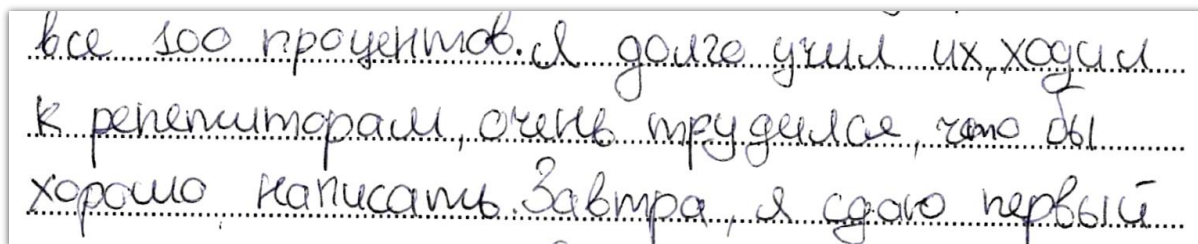 все 100 процентов. Я долго учил их, ходил
к репепиторам, очень трудился, что бы
хорошо написать. Завтра, я сдаю первый